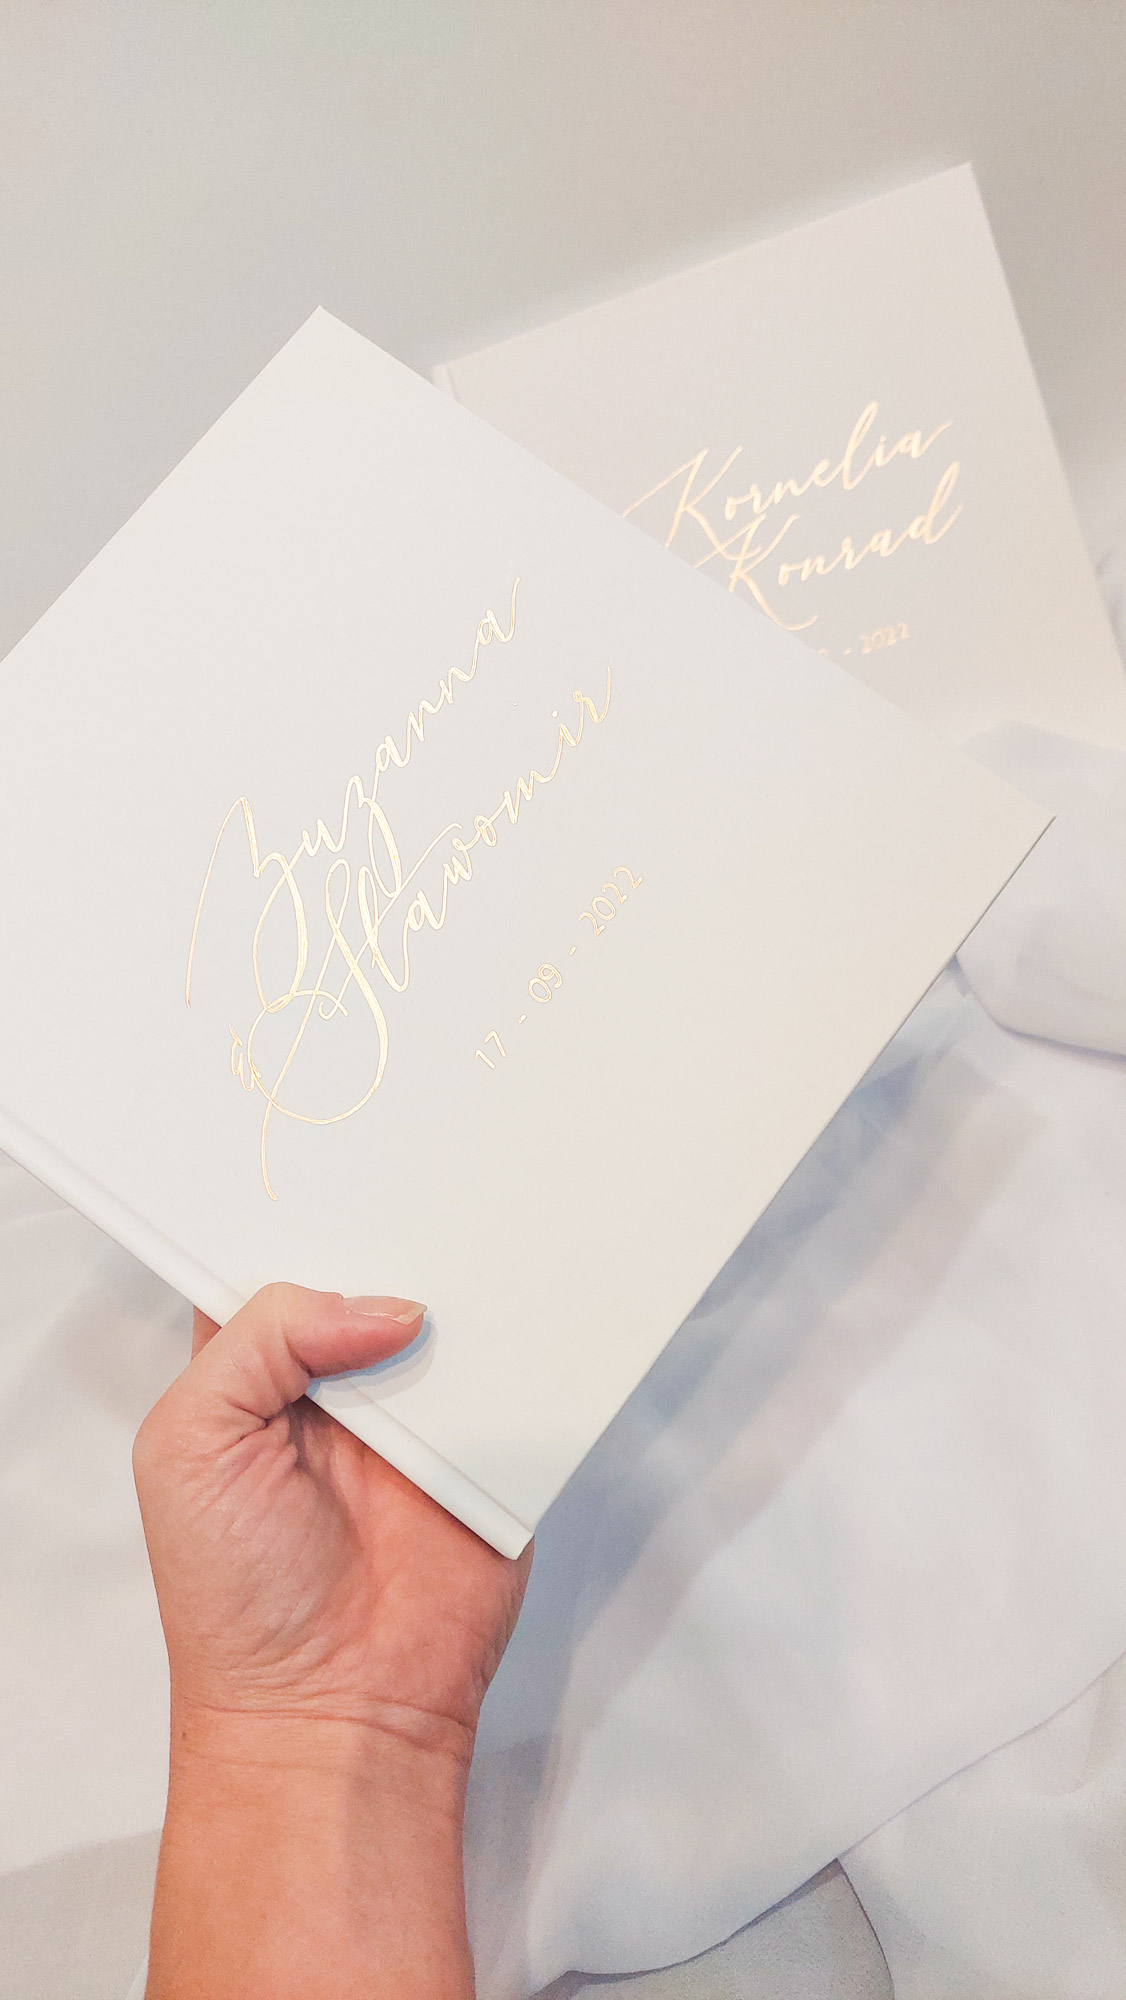 Zuzanna
& Sławomir
17 - 09 - 2022
Kornelia
Konrad
- 2022